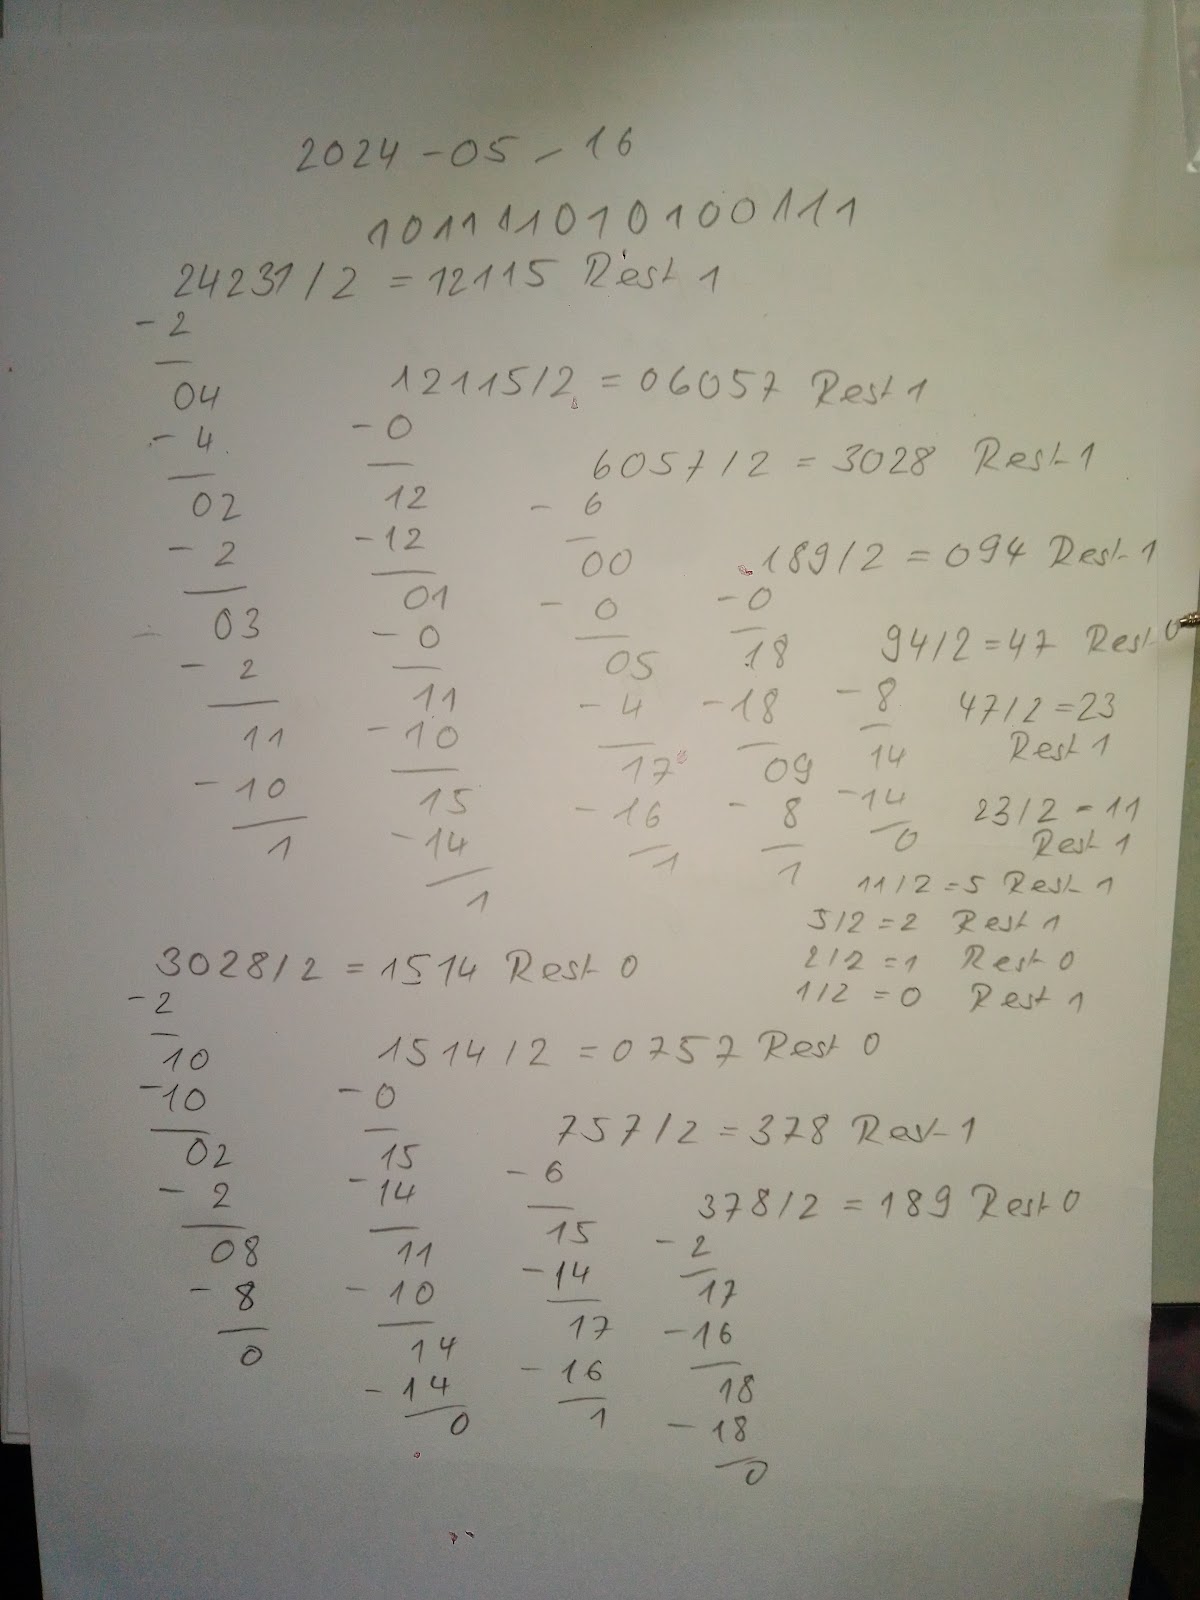 2024-05-16
101111010100111
24231/2 = 12115 Rest 1
- 2
04
- 4
02
- 2
03
- 2
11
- 10
1
12115/2 = 06057 Rest 1
- 0
12
- 12
01
- 0
11
- 10
15
- 14
1
6057/2 = 3028 Rest 1
- 6
00
- 0
05
- 4
17
- 16
1
189/2 = 094 Rest 1
- 0
18
- 18
09
- 8
1
94/2 = 47 Rest 0
- 8
14
- 14
0
47/2 = 23
Rest 1
23/2 = 11
Rest 1
11/2 = 5 Rest 1
5/2 = 2 Rest 1
2/2 = 1 Rest 0
1/2 = 0 Rest 1
3028/2 = 1514 Rest 0
- 2
10
- 10
02
- 2
08
- 8
0
1514/2 = 0757 Rest 0
- 0
15
- 14
11
- 10
14
- 14
0
757/2 = 378 Rest 1
- 6
15
- 14
17
- 16
1
378/2 = 189 Rest 0
- 2
17
- 16
18
- 18
0